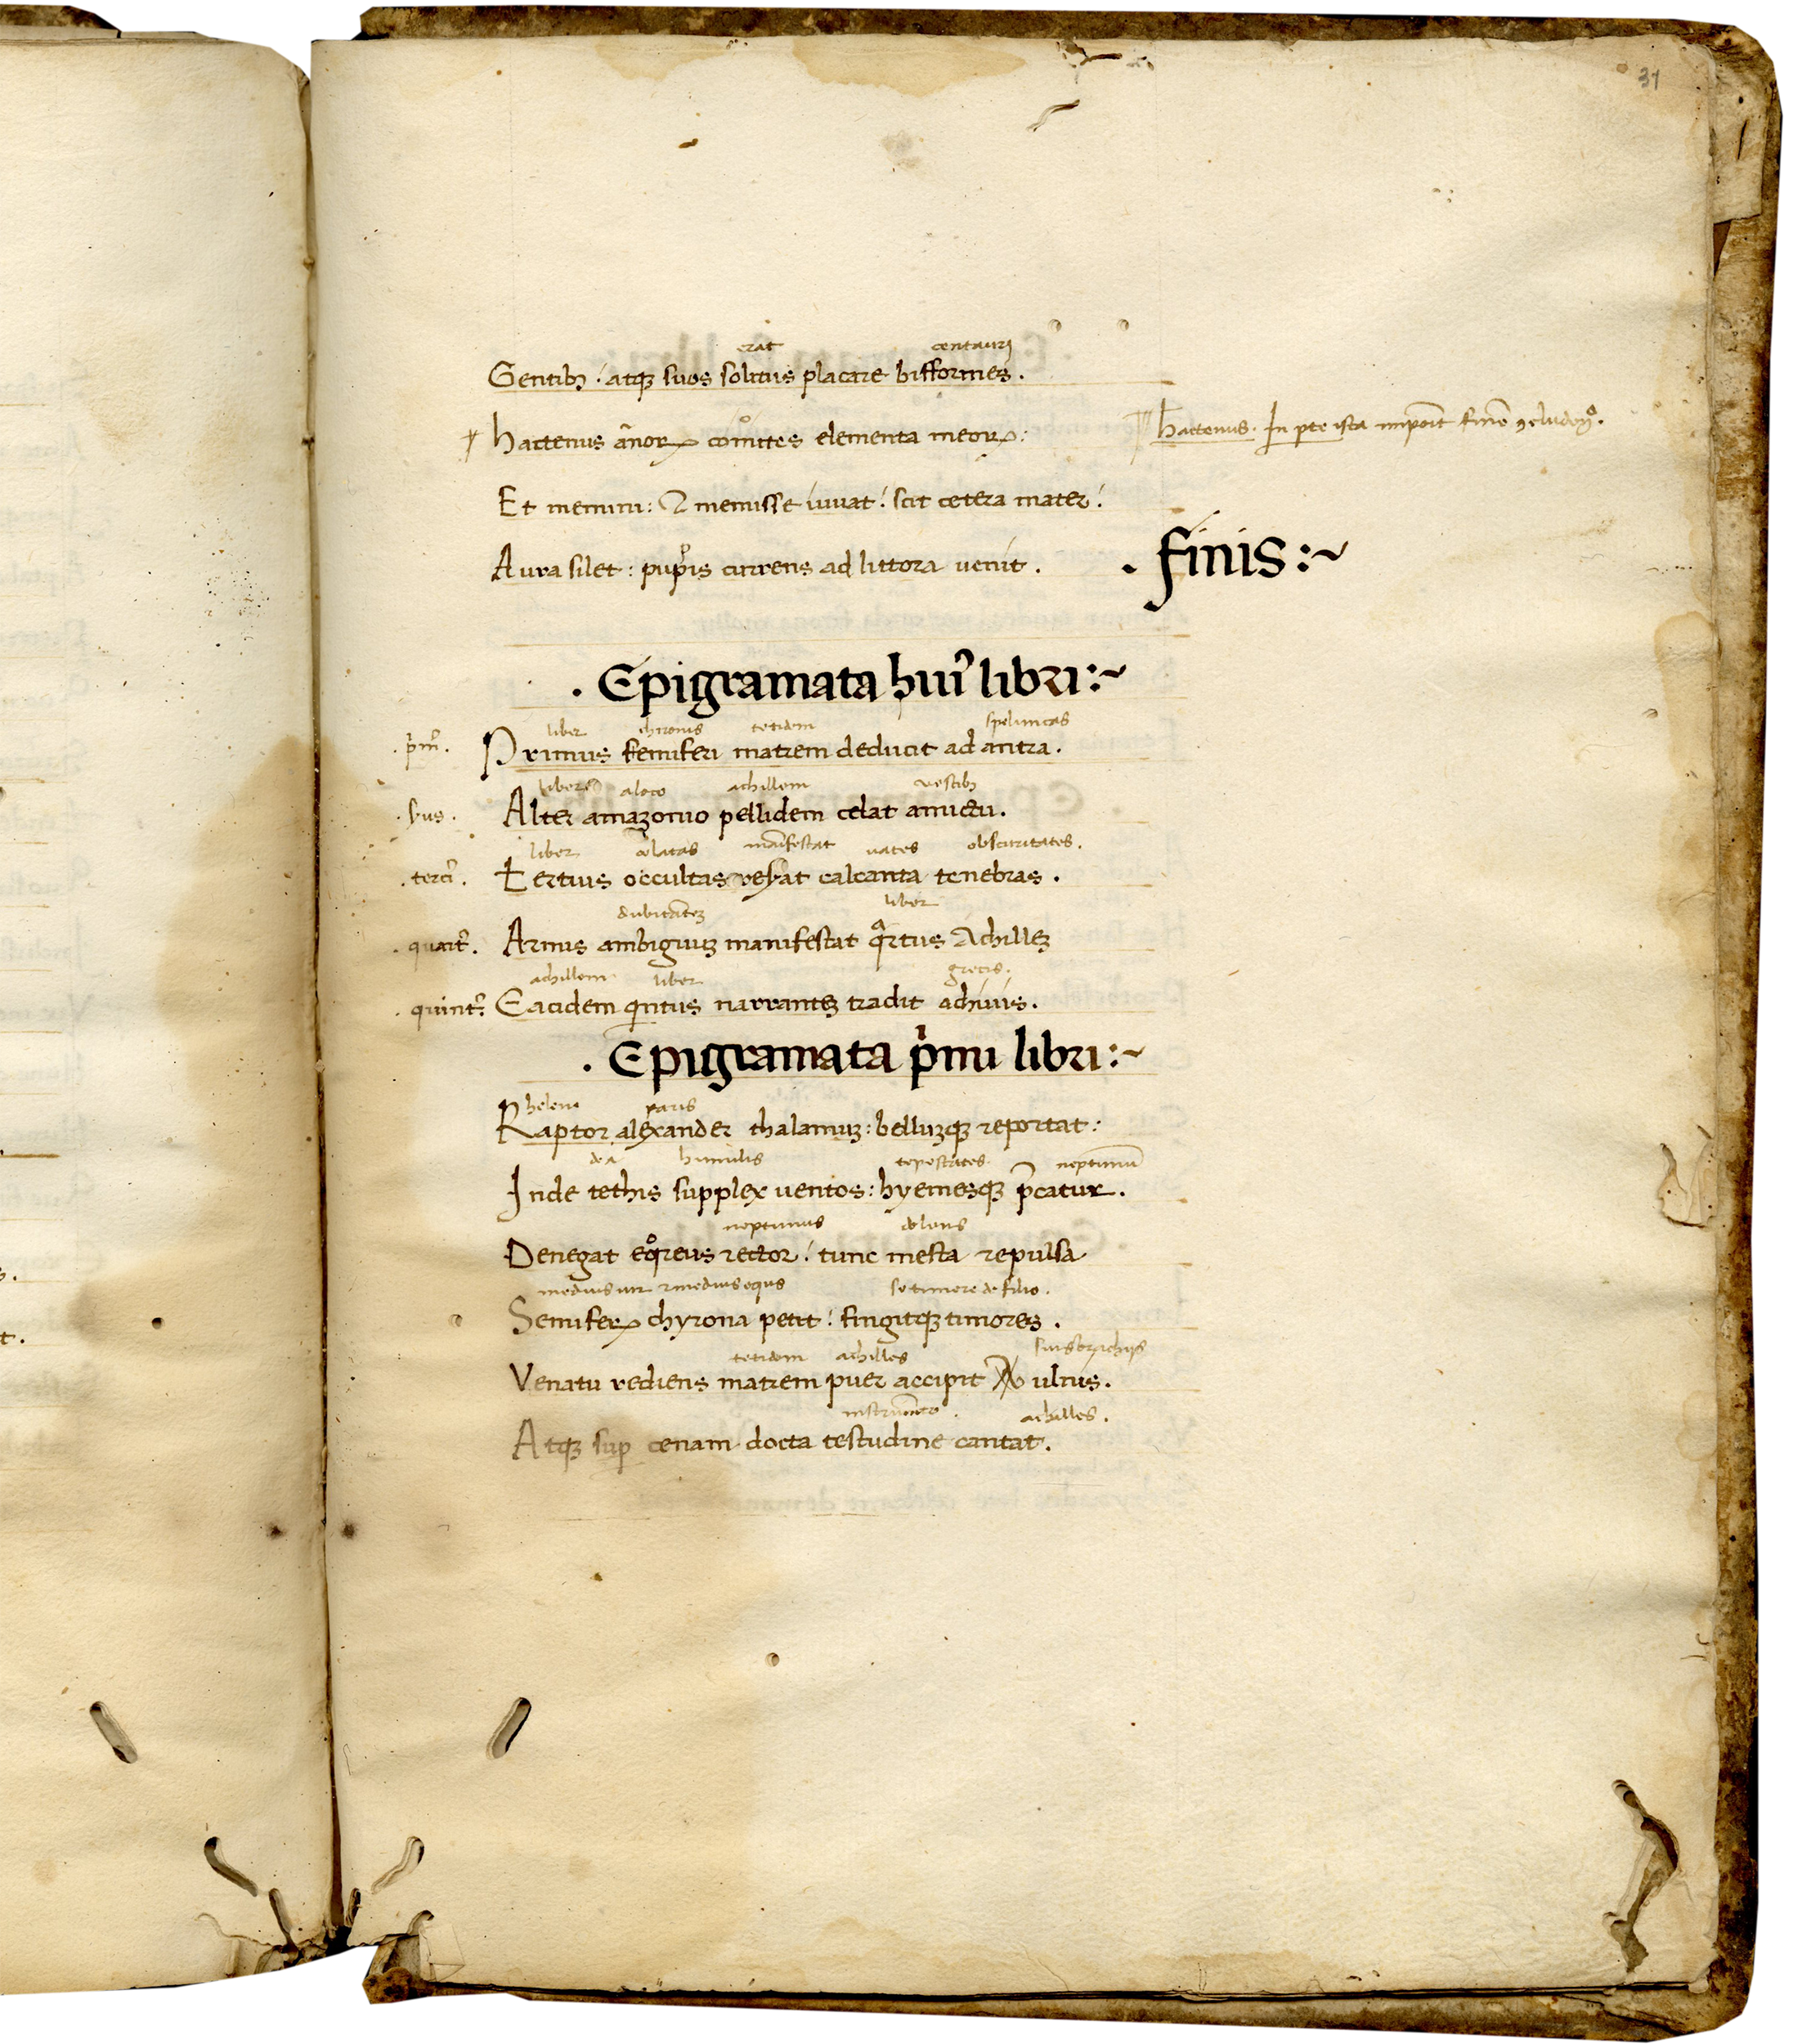 37
erat centauri
Gentibꝫ. atqꝫ suos solitus placare bifformes.
hactenus ãnoꝝ comites elementa meoꝝ:
hactenus. In pte ista
Et memini: ⁊ meminisse iuuat! scit cetera mater!
Aura silet: puppis currens ad littora uenit.
. finis:~
. Epigramata huiꝰ libri:~
liber chironis tetidem speluncas
.pmꝰ. Primus semiferi matrem deducit ad antra.
alaco achillem vestibꝫ
Alter amazonio pellidem celat amictu.
liber celatas manifestat uates obscuritates.
.terciꝰ. Tertius occultas reserat calcanta tenebras.
dubitantẽ liber
.quartꝰ. Armis ambiguuꝫ manifestat qͣrtus Achilleꝫ
achillem liber grecis.
.quintꝰ. Eacidem qͥntus narranteꝫ tradit achiuis.
. Epigramata pͥmi libri:~
helene paris
Raptor alexander thalamuꝫ: belluꝫqꝫ reportat:
dea humilis tẽpestates neptunũ
Inde tethis supplex uentos: hyemesqꝫ p̃catur.
neptunus dolens
Denegat eqͦreus rector! tunc mesta repulsa
medius uir ⁊ medius equs se timere de filio.
Semiferꝝ chyrona petit! fingitqꝫ timores.
tetidem achilles suis brachijs
Venatu rediens matrem puer accipit ulnis.
instrumẽto. achilles.
Atqꝫ sup cenam docta testudine cantat.